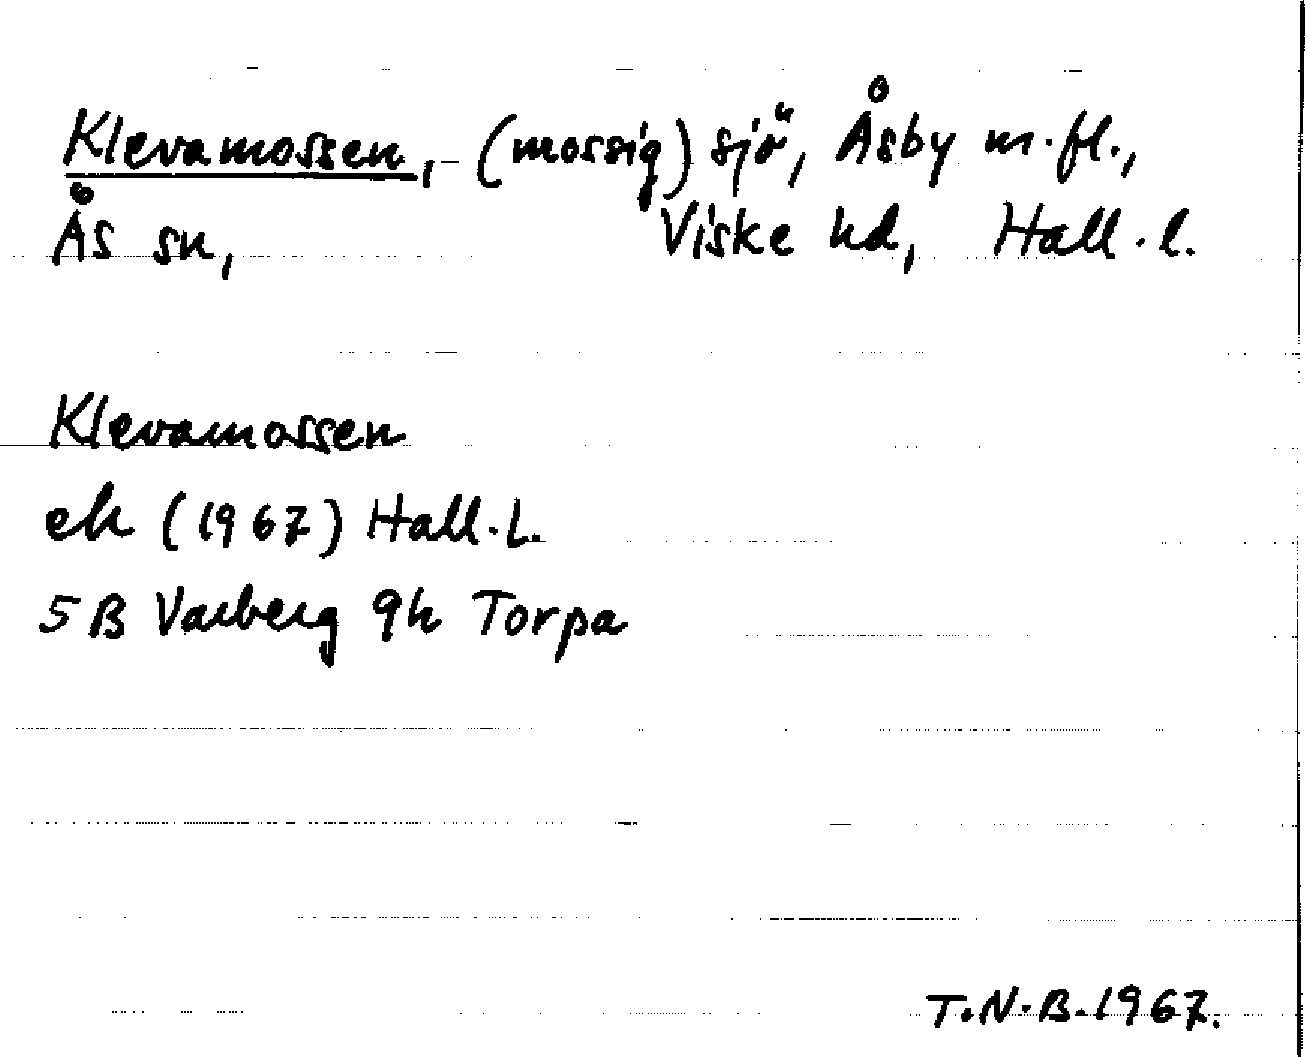 Klevamossen, (mossig) sjö, Åsby m.fl.,
Ås sn, Viske hd, Hall.l.
Klevamossen
ek (1967) Hall.L.
5B Varberg 9h Torpa
T.N.B.1967.